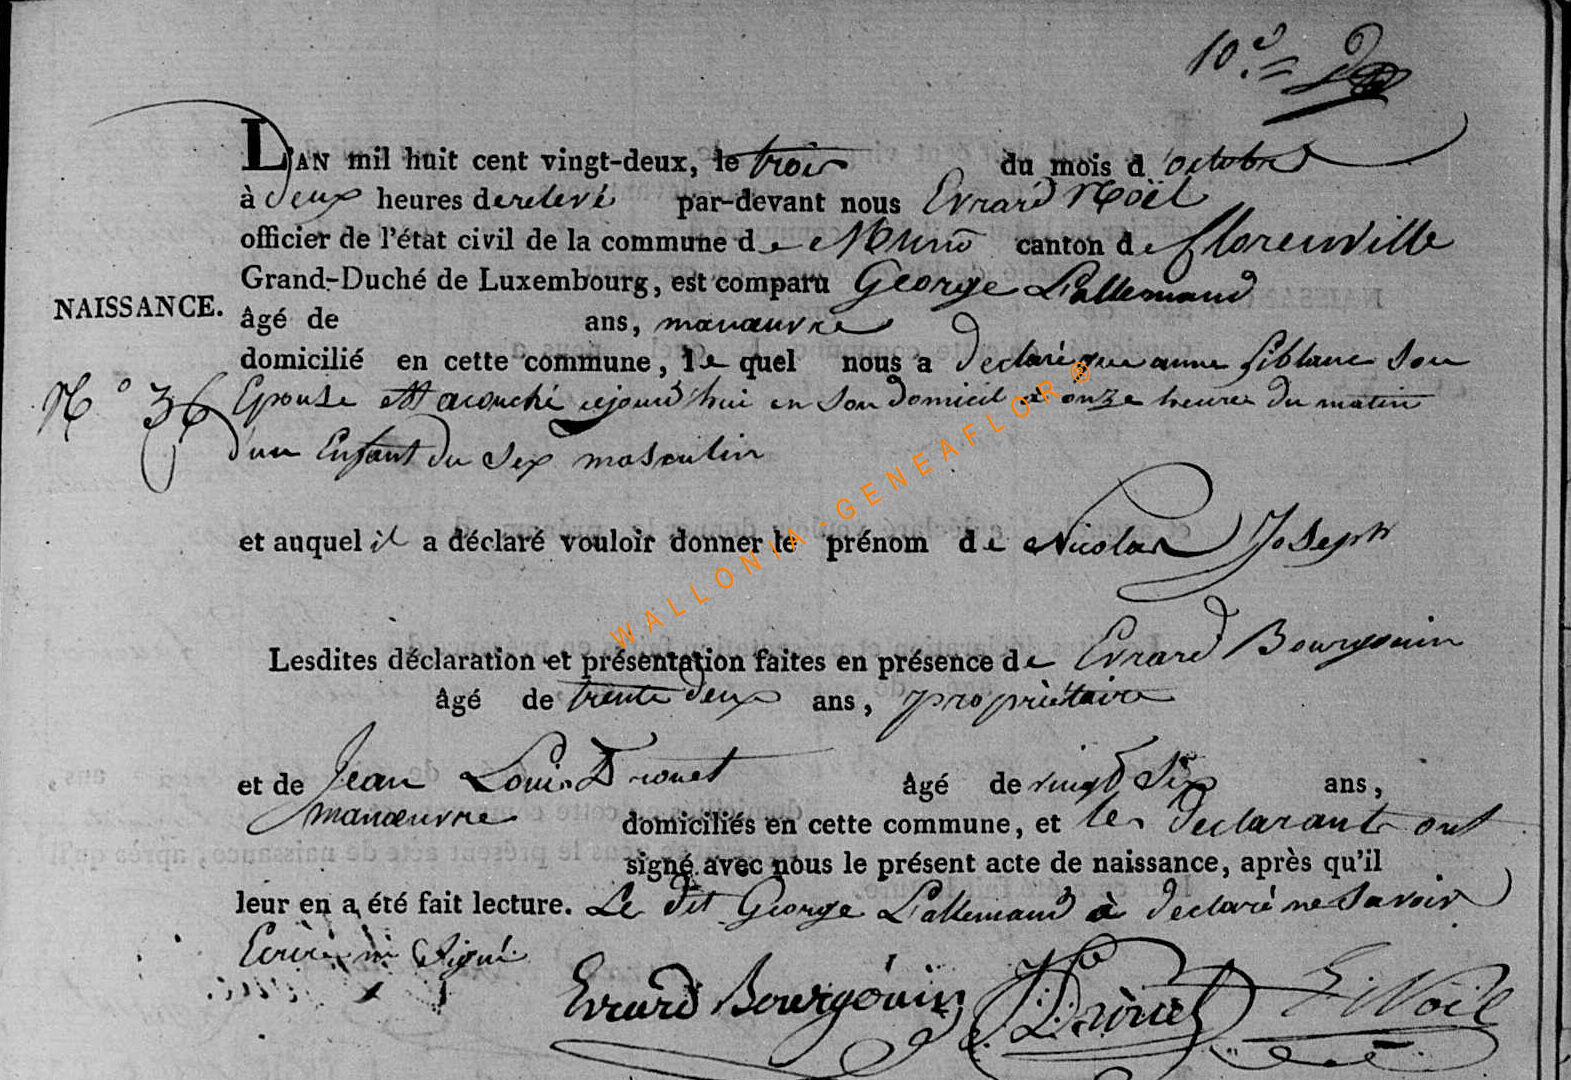 10.e
L'AN mil huit cent vingt-deux, le trois du mois d'octobre
à deux heures de relevé par-devant nous Evrard Noël
officier de l'état civil de la commune de Muno canton de florenville
Grand-Duché de Luxembourg, est comparu George Lallemand
NAISSANCE.
âgé de ans, manœuvre
domicilié en cette commune, le quel nous a declaré que anne son
N° 36
Epouse est acouché cejourd'hui en son domicil a onze heures du matin
d'un Enfant du sex masculin
et auquel il a déclaré vouloir donner le prénom de Nicolas Joseph
Lesdites déclaration et présentation faites en présence de Evrard Bourgouin
âgé de trente deux ans, propriètaire
et de Jean Louis Drouet âgé de vingt Six ans,
manœuvre domiciliés en cette commune, et les declarants ont
signé avec nous le présent acte de naissance, après qu'il
leur en a été fait lecture. Le dit George Lallemand à declaré ne savoir
Ecrire ni Signé
Evrard Bourgouin Drouet E Noël
WALLONIA-GENEAFLOR®